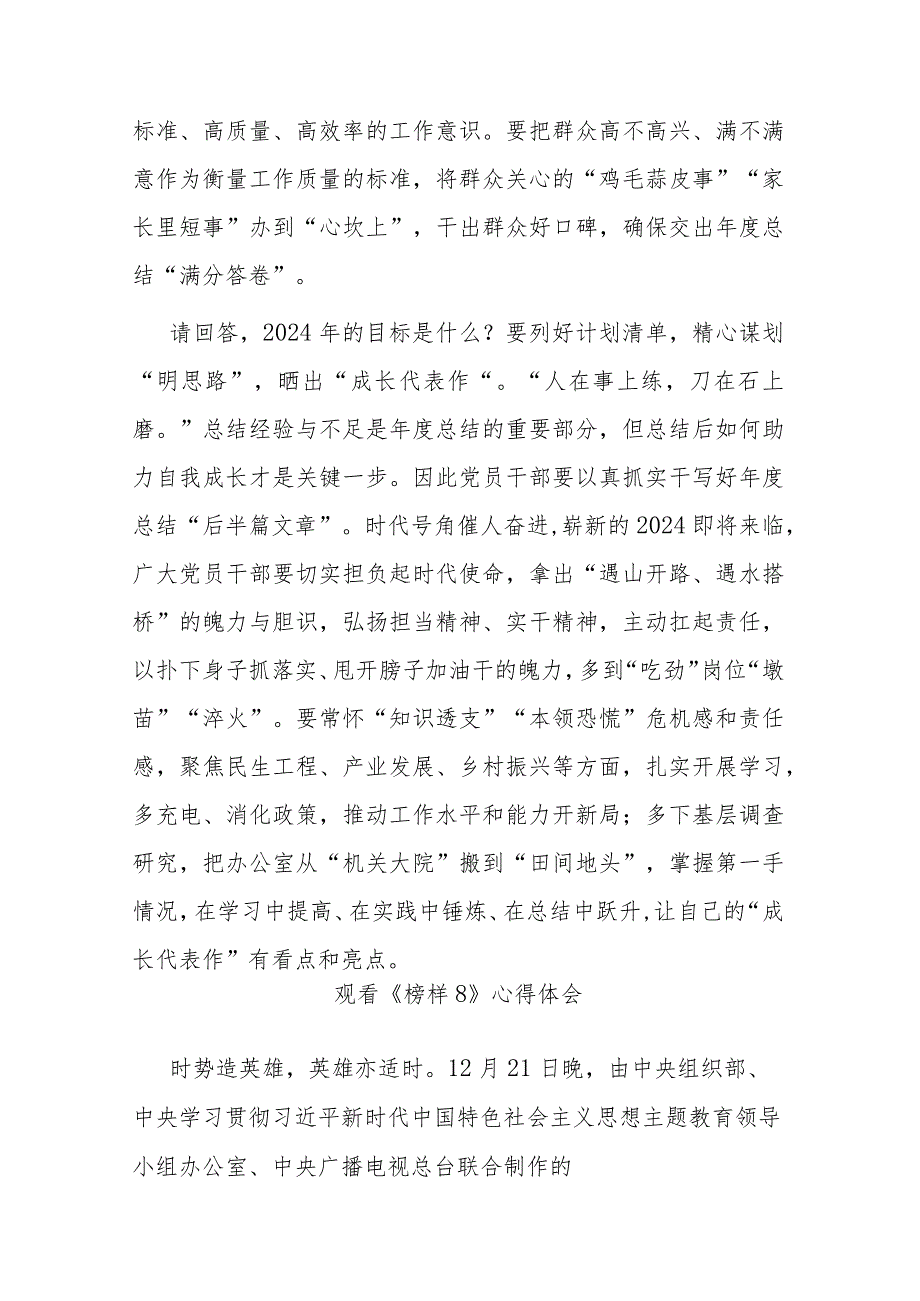 标准、高质量、高效率的工作意识。要把群众高不高兴、满不满
意作为衡量工作质量的标准，将群众关心的“鸡毛蒜皮事”“家
长里短事”办到“心坎上”，干出群众好口碑，确保交出年度总
结“满分答卷”。
请回答，2024 年的目标是什么？要列好计划清单，精心谋划
“明思路”，晒出“成长代表作“。“人在事上练，刀在石上
磨。”总结经验与不足是年度总结的重要部分，但总结后如何助
力自我成长才是关键一步。因此党员干部要以真抓实干写好年度
总结“后半篇文章”。时代号角催人奋进,崭新的 2024 即将来临，
广大党员干部要切实担负起时代使命，拿出“遇山开路、遇水搭
桥”的魄力与胆识，弘扬担当精神、实干精神，主动扛起责任，
以扑下身子抓落实、甩开膀子加油干的魄力，多到“吃劲”岗位“墩
苗”“淬火”。要常怀“知识透支”“本领恐慌”危机感和责任
感，聚焦民生工程、产业发展、乡村振兴等方面，扎实开展学习，
多充电、消化政策，推动工作水平和能力开新局；多下基层调查
研究，把办公室从“机关大院”搬到“田间地头”，掌握第一手
情况，在学习中提高、在实践中锤炼、在总结中跃升,让自己的“成
长代表作”有看点和亮点。
观看《榜样 8》心得体会
时势造英雄，英雄亦适时。12 月 21 日晚，由中央组织部、
中央学习贯彻习近平新时代中国特色社会主义思想主题教育领导
小组办公室、中央广播电视总台联合制作的